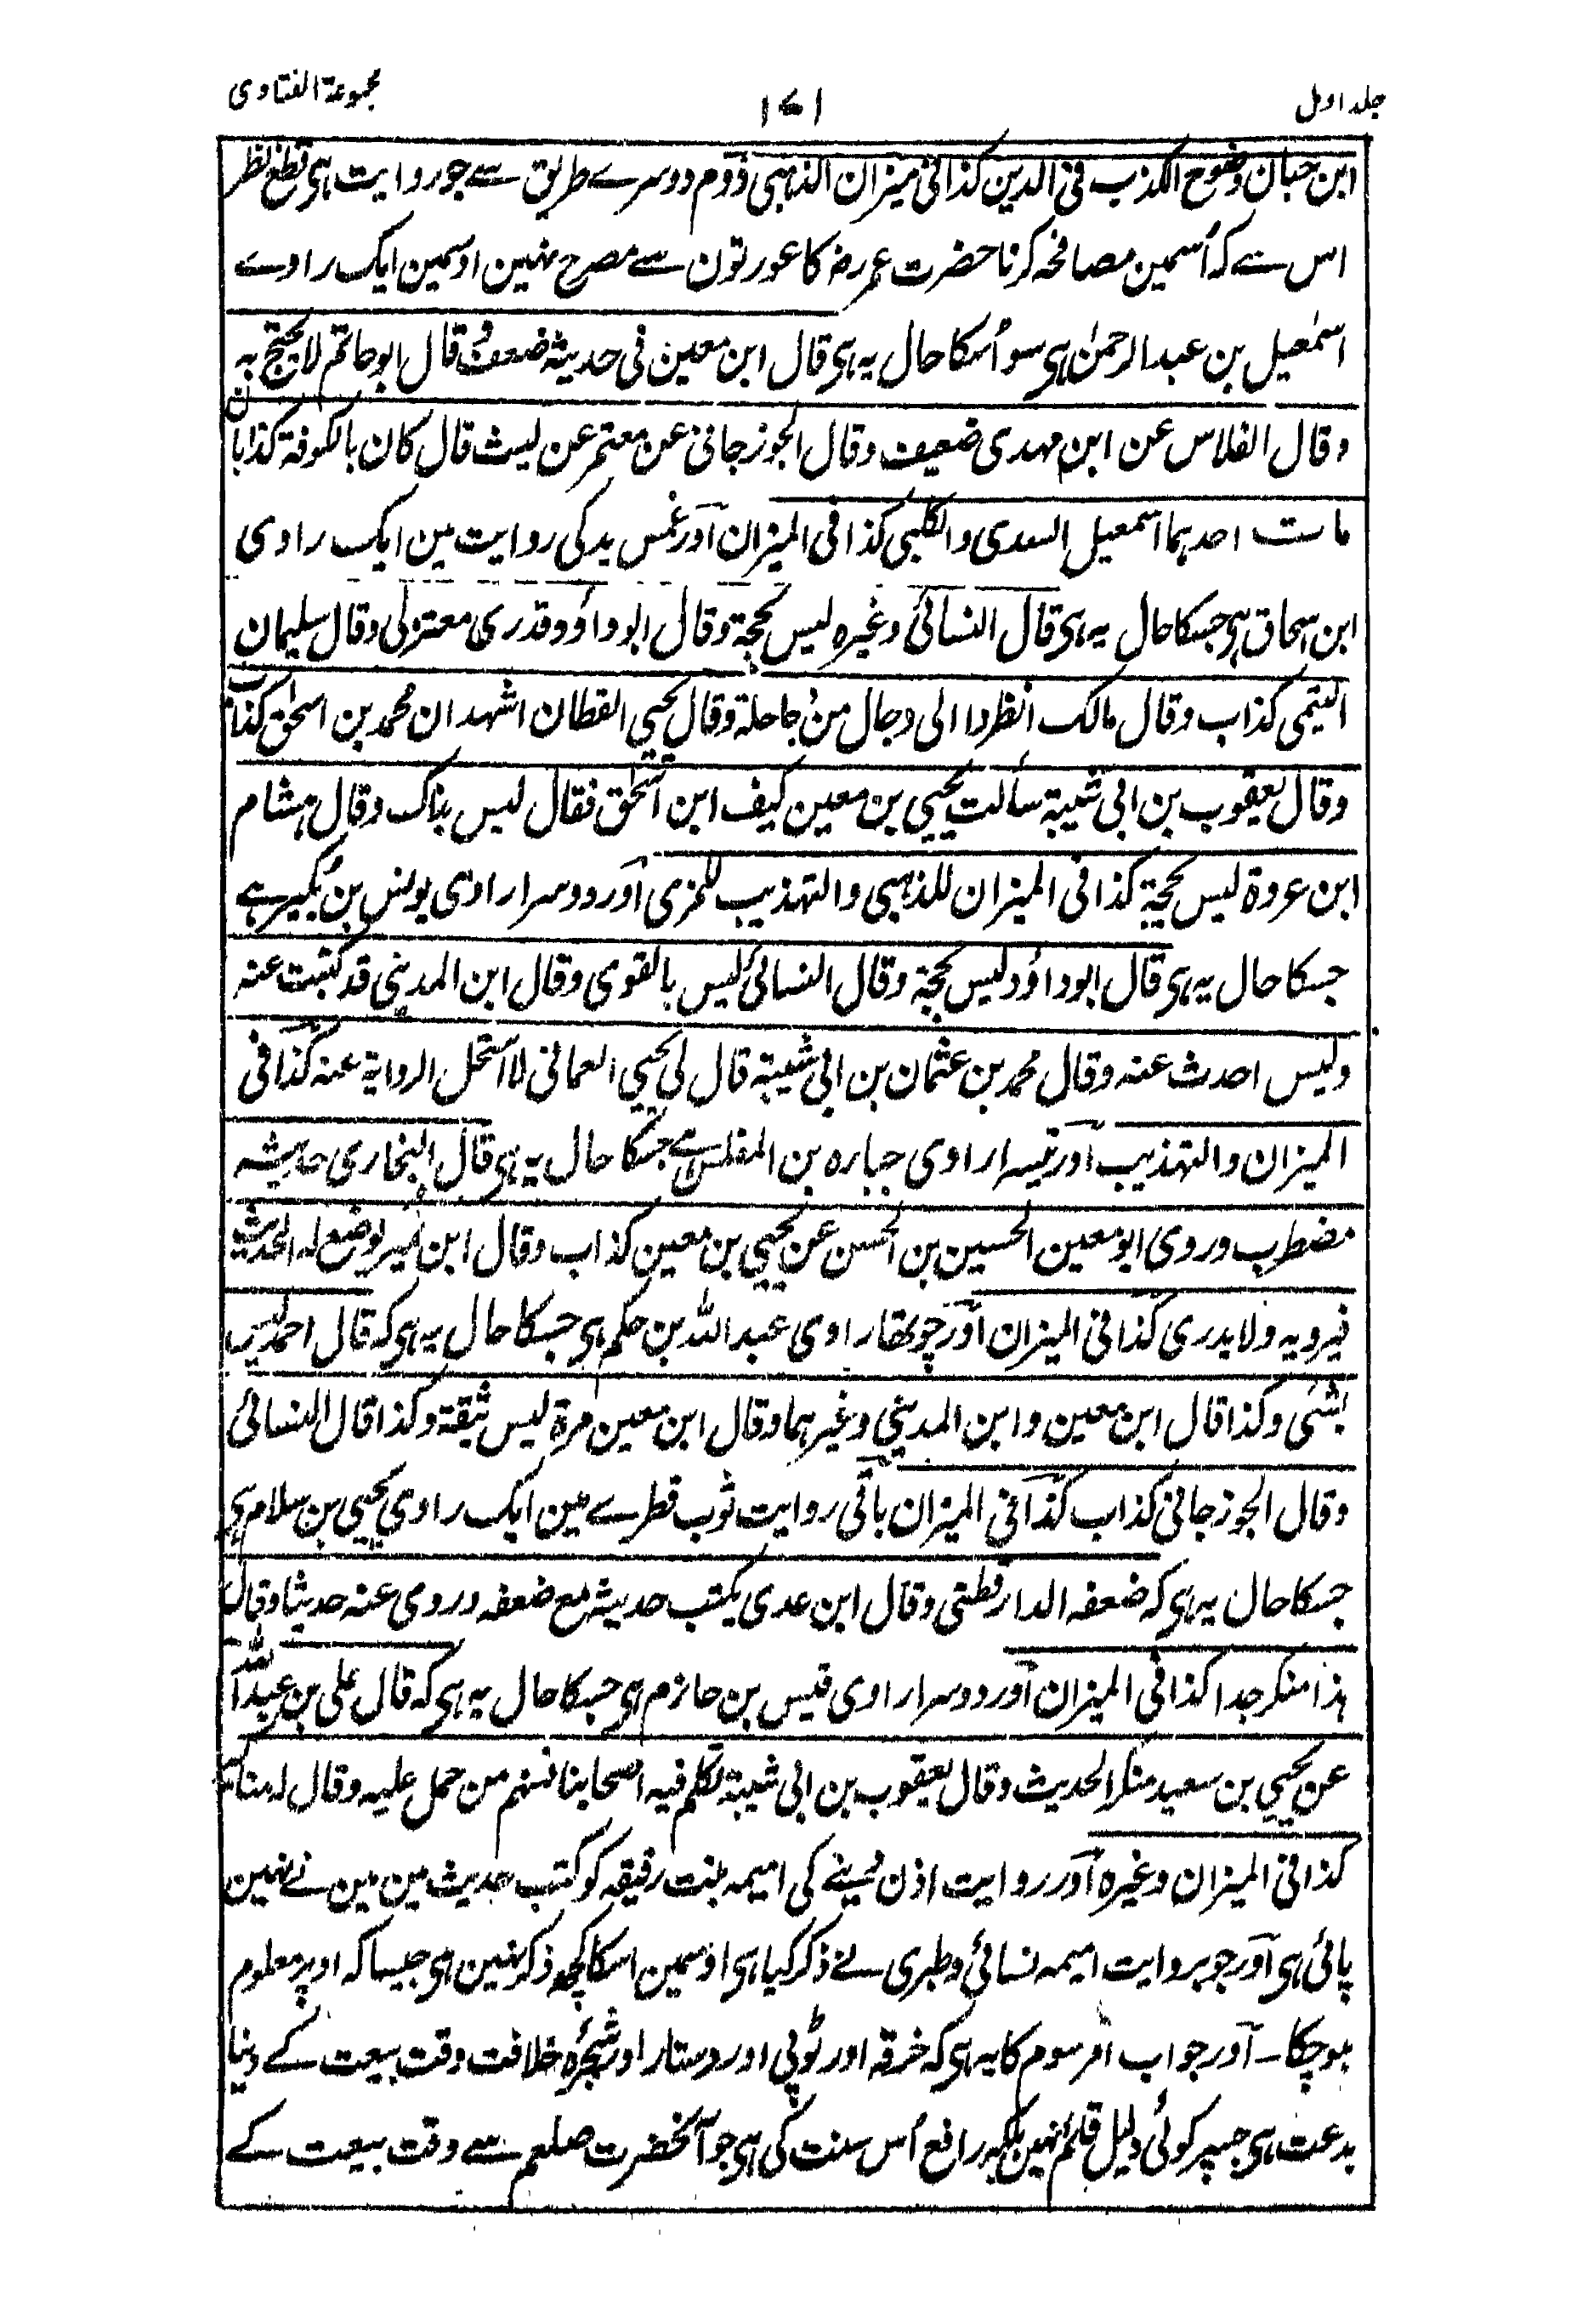 جلد اول
۱۷۱
مجموعة الفتاوى
ابن حبان وضوح الكذب فى الدين كذا فى ميزان الذهبى دوم دوسرے طريق سے جو روايت ہى قطع نظر
اس سے كہ اُسمين مصافحہ كرنا حضرت عمر رض كا عورتون سے مصرح نہين اوسمين ايك راوے
اسمٰعيل بن عبد الرحمٰن ہى سو اُسكا حال يہ ہى قال ابن معين فى حديثه ضعف قال ابو حاتم لا يحتج به
وقال الفلاس عن ابن مهدى ضعيف وقال الجوزجانى عن معتمر عن ليث قال كان بالكوفة كذابان
مات احدهما اسمعيل السدى والكلبى كذا فى الميزان اور غمس يد كى روايت مين ايك راوى
ابن اسحاق ہى جسكا حال يہ ہى قال النسائى وغيره ليس بحجة وقال ابو داؤد قدرى معتزلى وقال سليمان
التيمى كذاب وقال مالك انظروا الى دجال من دجاجلة وقال يحيى القطان اشهد ان محمد بن اسحٰق كذاب
وقال يعقوب بن ابى شيبة سألت يحيى بن معين كيف ابن اسحٰق فقال ليس بذاك وقال هشام
ابن عروة ليس بحجة كذا فى الميزان للذهبى والتهذيب للمزى اور دوسرا راوى يونس بن بُكير ہے
جسكا حال يہ ہى قال ابو داؤد ليس بحجة وقال النسائى ليس بالقوى وقال ابن المدينى قد كتبت عنه
وليس احدث عنه وقال محمد بن عثمان بن ابى شيبة قال لى يحيى العمانى لا استحل الرواية عنه كذا فى
الميزان والتهذيب اور تيسرا راوى جباره بن المغلس ہے جسكا حال يہ ہى قال البخارى حديثه
مضطرب وروى ابو معين الحسين بن الحسن عن يحيى بن معين كذاب وقال ابن نُمير يوضع له الحديث
فيرويه ولا يدرى كذا فى الميزان اور چوتھا راوى عبد الله بن حكم ہى جسكا حال يہ ہى كہ قال احمد ليس
بشئى وكذا قال ابن معين وابن المدينى وغيرهما وقال ابن معين مرة ليس بثقة وكذا قال النسائى
وقال الجوزجانى كذاب كذا فى الميزان باقى روايت ثوب قطرے مين ايك راوى يحيى بن سلام ہى
جسكا حال يہ ہى كہ ضعفه الدارقطنى وقال ابن عدى يكتب حديثه مع ضعفه وروى عنه حديثا وقال
هذا منكر جدا كذا فى الميزان اور دوسرا راوى قيس بن حازم ہى جسكا حال يہ ہى كہ قال على بن عبد الله
عن يحيى بن سعيد منكر الحديث وقال يعقوب بن ابى شيبة تكلم فيه اصحابنا فمنهم من حمل عليه وقال له مناكير
كذا فى الميزان وغيره اور روايت اذن دينے كى اميمہ بنت رقيقہ كو كتب حديث مين مين نے نہين
پائى ہى اور جو بروايت اميمہ نسائى وطبرى نے ذكر كيا ہى اوسمين اسكا كچھ ذكر نہين ہى جيسا كہ اوپر معلوم
ہوچكا ۔ اور جواب امر سوم كا يہ ہى كہ خرقہ اور ٹوپى اور دستار اور شجرۂ خلافت وقت بيعت كے دينا
بدعت ہى جسپر كوئى دليل قائم نہين بلكہ رافع اُس سنت كى ہى جو آنحضرت صلعم سے وقت بيعت كے